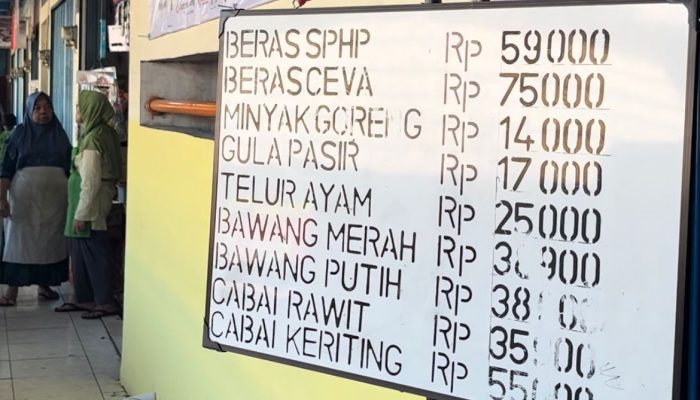 BERAS SPHP Rp 59000
BERAS CEVA Rp 75000
MINYAK GORENG Rp 14000
GULA PASIR Rp 17000
TELUR AYAM Rp 25000
BAWANG MERAH Rp
BAWANG PUTIH Rp
CABAI RAWIT Rp
CABAI KERITING Rp